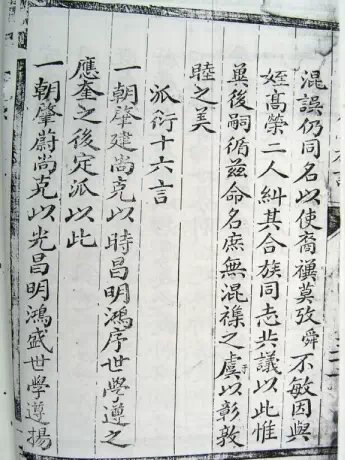 混誤仍同名以使裔禩莫攷舜不敏因與
姪高榮二人糾其合族同志共議以此惟
兾後嗣循茲命名庶無混襍之虞以彰敦
睦之美
派衍十六言
一朝肇建尚克以時昌明鴻序世學遵之
應奎之後定派以此
一朝肇蔚尚克以光昌明鴻盛世學遵揚